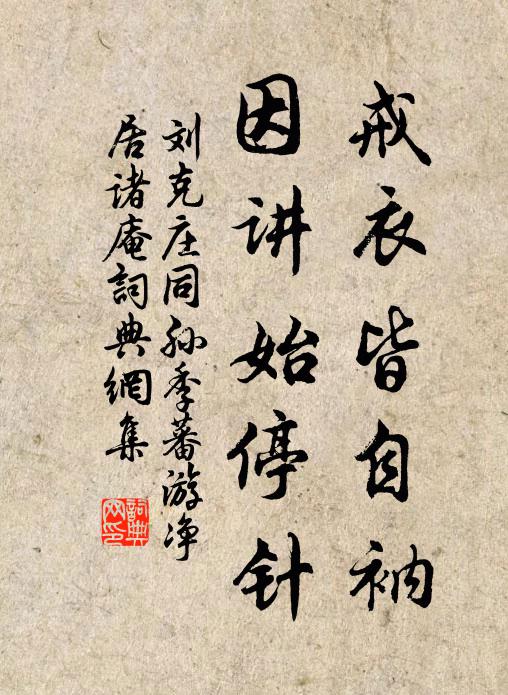 戒衣皆自衲
因讲始停针
刘克庄同孙季蕃游净
居诸庵詞典網集
詞典
网印